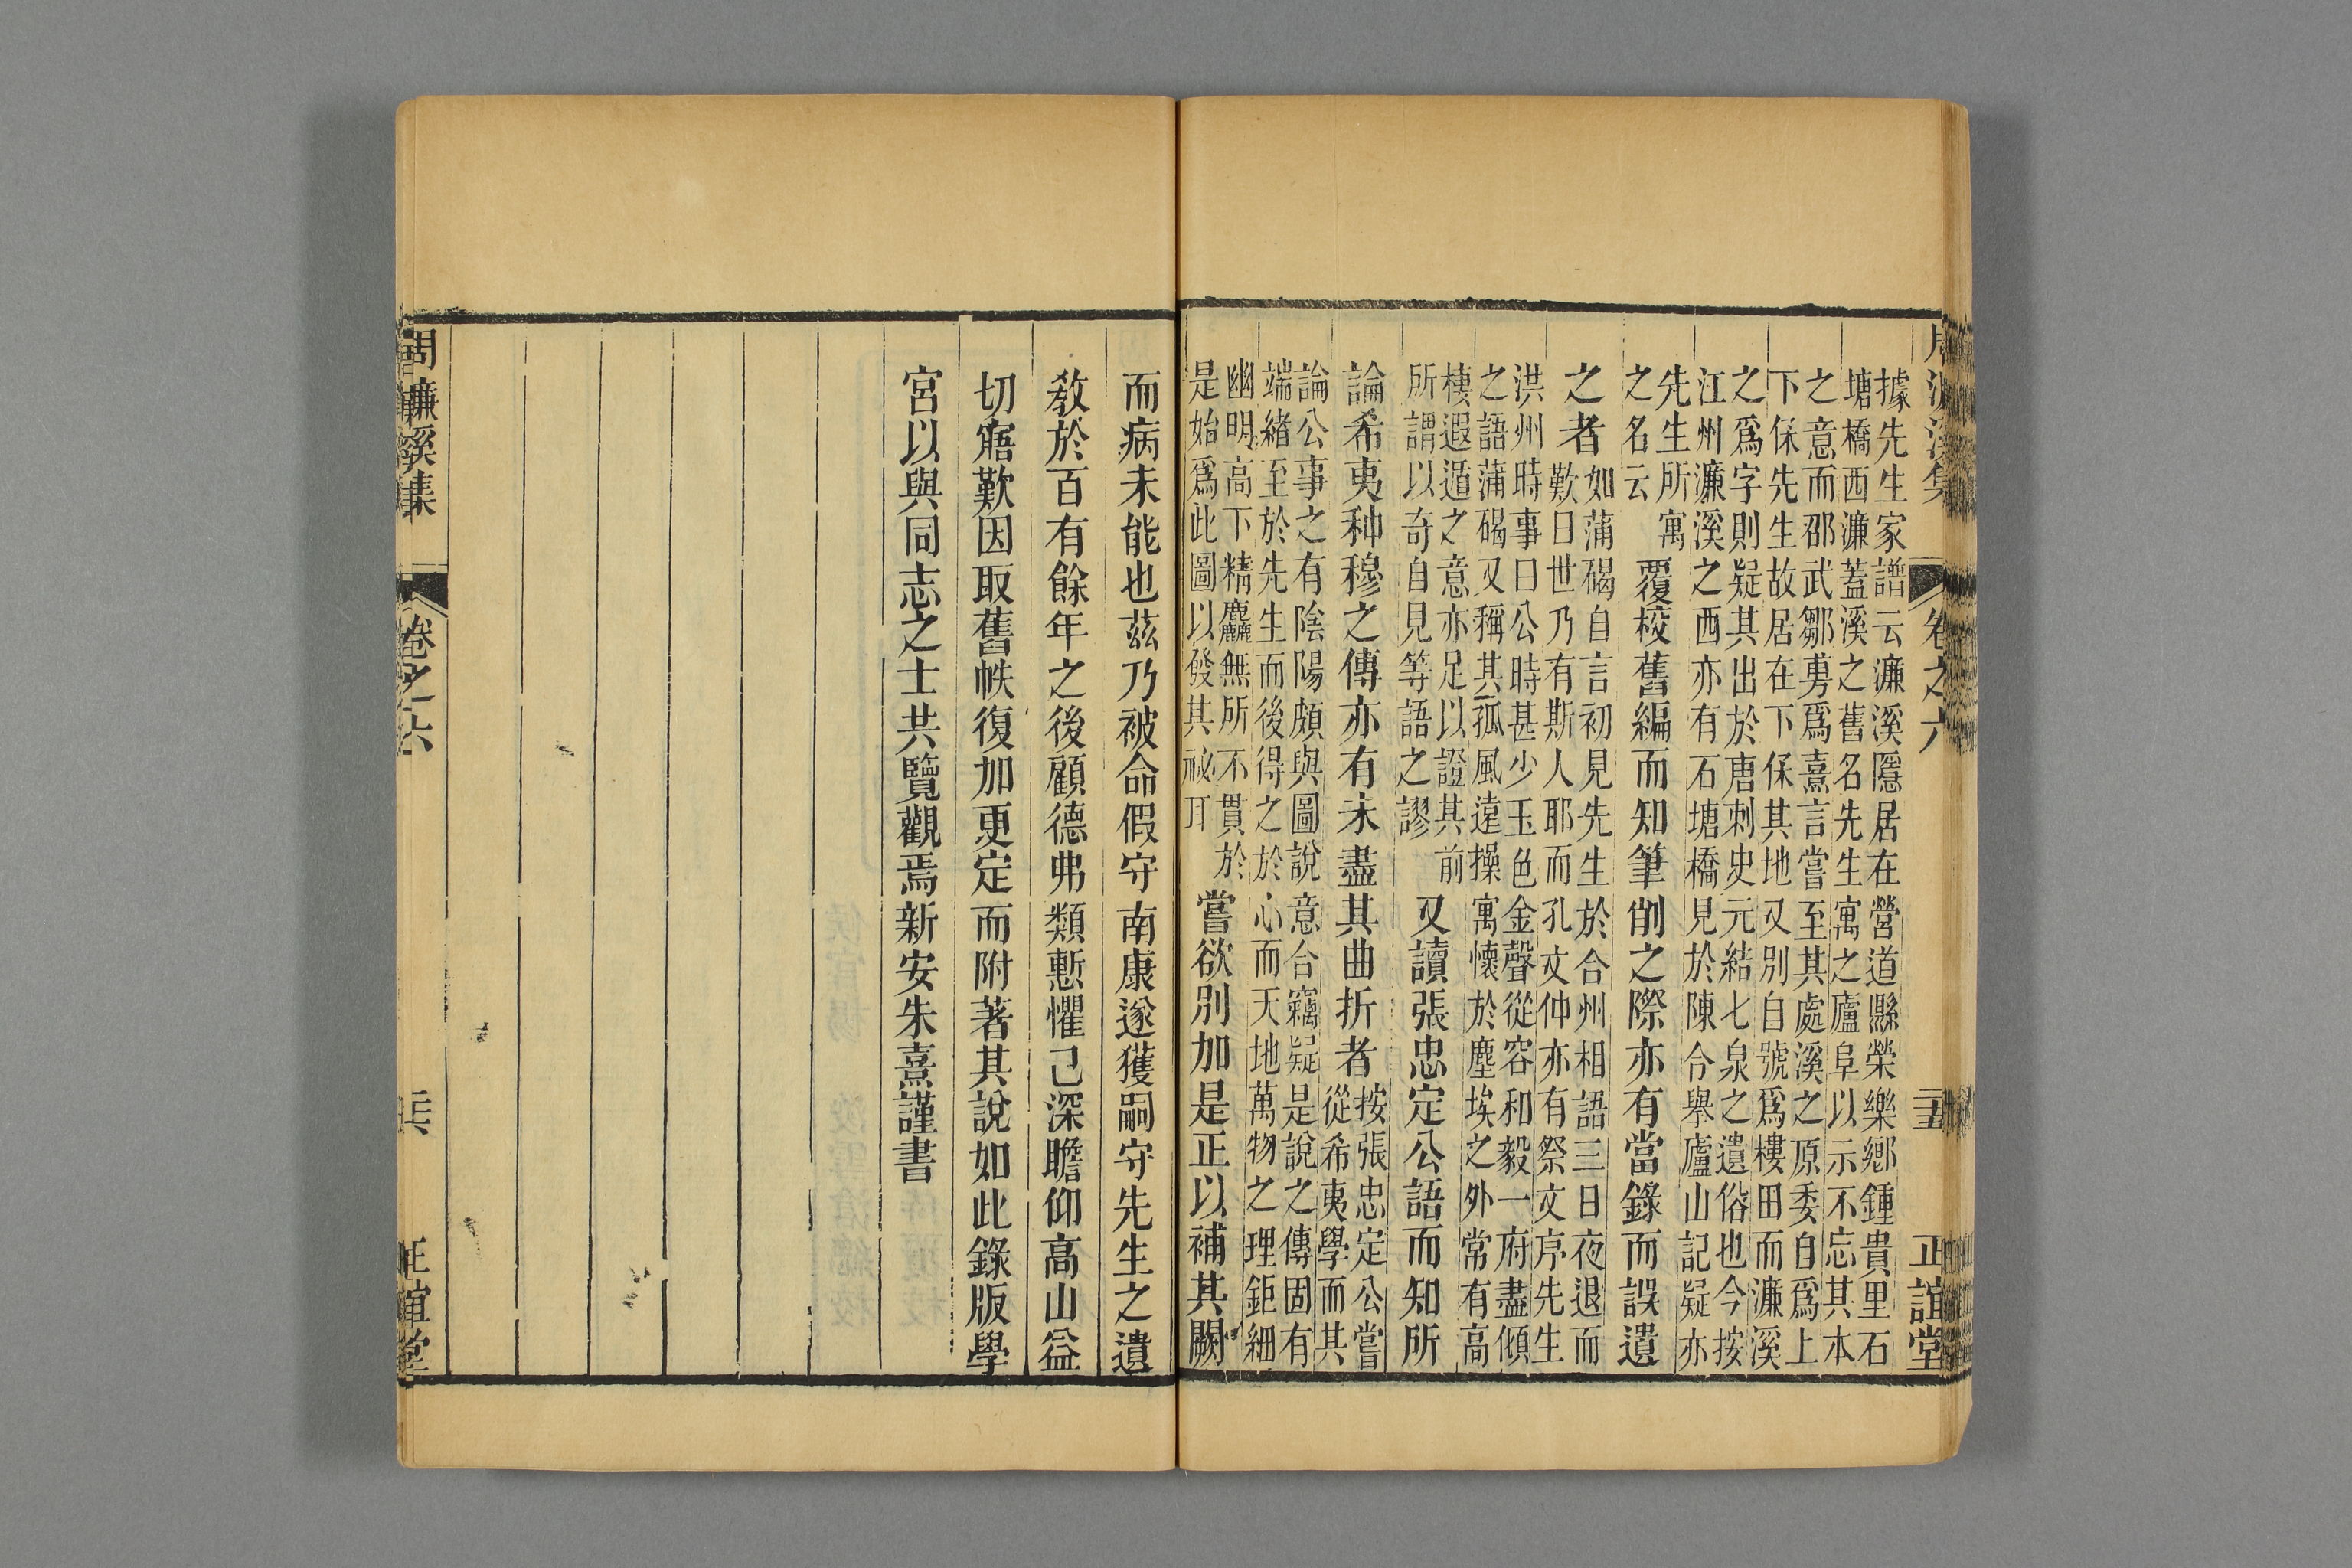 周濂溪集 卷之六 三五 正誼堂
據先生家譜云濂溪隱居在營道縣榮樂鄉鍾貴里石
塘橋西濂蓋溪之舊名先生寓之廬阜以示不忘其本
之意而邵武鄒旉爲熹言嘗至其處溪之原委自爲上
下保先生故居在下保其地又別自號爲樓田而濂溪
之爲字則疑其出於唐刺史元結七泉之遺俗也今按
江州濂溪之西亦有石塘橋見於陳令舉廬山記疑亦
先生所寓
之名云
覆校舊編而知筆削之際亦有當錄而誤遺
之者
如蒲碣自言初見先生於合州相語三日夜退而
歎曰世乃有斯人耶而孔文仲亦有祭文序先生
洪州時事曰公時甚少玉色金聲從容和毅一府盡傾
之語蒲碣又稱其孤風遠操寓懷於塵埃之外常有高
棲遐遁之意亦足以證其前
所謂以奇自見等語之謬
又讀張忠定公語而知所
論希夷种穆之傳亦有未盡其曲折者
按張忠定公嘗
從希夷學而其
論公事之有陰陽頗與圖說意合竊疑是說之傳固有
端緒至於先生而後得之於心而天地萬物之理鉅細
幽明高下精麤無所不貫於
是始爲此圖以發其祕耳
嘗欲別加是正以補其闕
而病未能也茲乃被命假守南康遂獲嗣守先生之遺
教於百有餘年之後顧德弗類慙懼已深瞻仰高山益
切寤歎因取舊帙復加更定而附著其說如此錄版學
宮以與同志之士共覽觀焉新安朱熹謹書
周濂溪集 卷之六 正誼堂